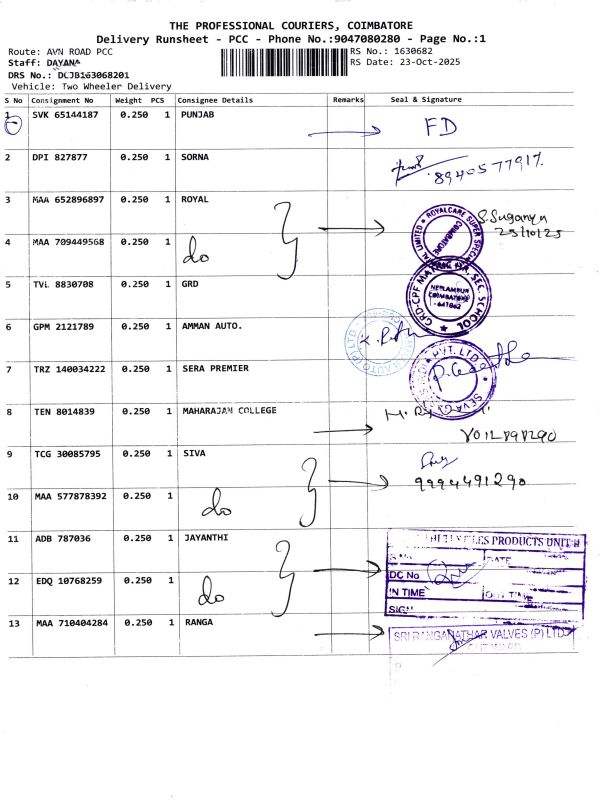 THE PROFESSIONAL COURIERS, COIMBATORE
Delivery Runsheet - PCC - Phone No.:9047080280 - Page No.:1
Route: AVN ROAD PCC
RS No.: 1630682
Staff: DAYANA
RS Date: 23-Oct-2025
DRS No.: DCJB163068201
Vehicle: Two Wheeler Delivery
S No Consignment No Weight PCS Consignee Details Remarks Seal & Signature
1 SVK 65144187 0.250 1 PUNJAB FD
2 DPI 827877 0.250 1 SORNA 8940577917.
3 MAA 652896897 0.250 1 ROYAL S. Suganya
23/10/25
ROYALCARE SUPER SPECIAL LIMITED
COIMBATORE
4 MAA 709449568 0.250 1 do
5 TVL 8830708 0.250 1 GRD
GRD-CPF MAT. HR. SEC. SCHOOL
NEELAMBUR
COIMBATORE
641062
6 GPM 2121789 0.250 1 AMMAN AUTO.
AUTO (P) LTD
7 TRZ 140034222 0.250 1 SERA PREMIER
PVT. LTD.
8 TEN 8014839 0.250 1 MAHARAJAN COLLEGE
8012898290
9 TCG 30085795 0.250 1 SIVA
9994491290
10 MAA 577878392 0.250 1 do
11 ADB 787036 0.250 1 JAYANTHI
PRODUCTS UNIT-II
S.No DATE
DC No
IN TIME OUT TIME
SIGN
12 EDQ 10768259 0.250 1 do
13 MAA 710404284 0.250 1 RANGA
SRI RANGANATHAR VALVES (P) LTD